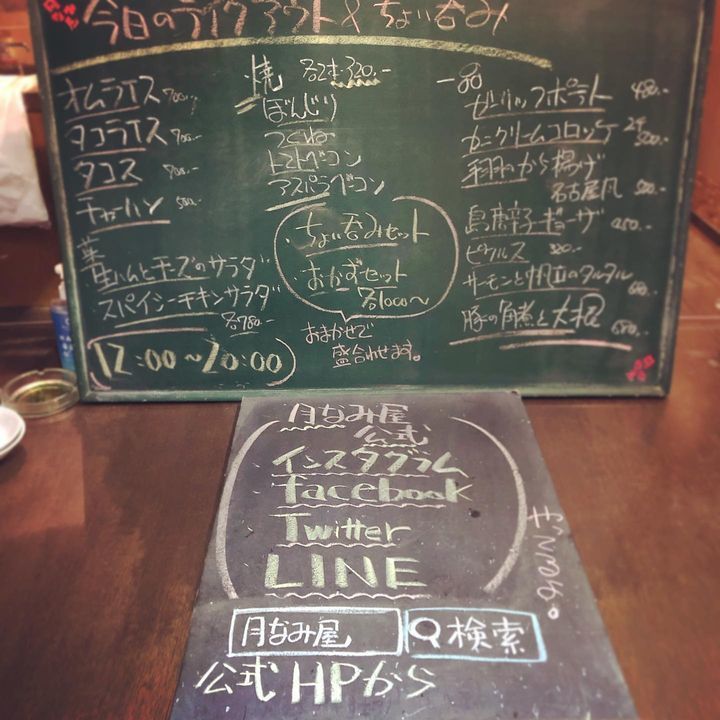 今日のテイクアウト&ちょい呑み
オムライス 700.-
タコライス 700.-
タコス 700.-
チャーハン 500.-
菜
生ハムとチーズのサラダ
スパイシーチキンサラダ
各780.-
12:00~20:00
焼 各2本 320.-
ぼんじり
つくね
トマトベーコン
アスパラベーコン
ちょい呑みセット
おかずセット
各1000~
おまかせで
盛合わせます。
一品
カニクリームコロッケ 2ケ 500.-
手羽から揚げ
名古屋風 500.-
島唐辛子ギョーザ
ピクルス 320.-
サーモンと帆立のタルタル
豚の角煮と大根 680.-
月なみ屋
公式
インスタグラム
facebook
Twitter
LINE
やってるよ。
月なみ屋 検索
公式HPから